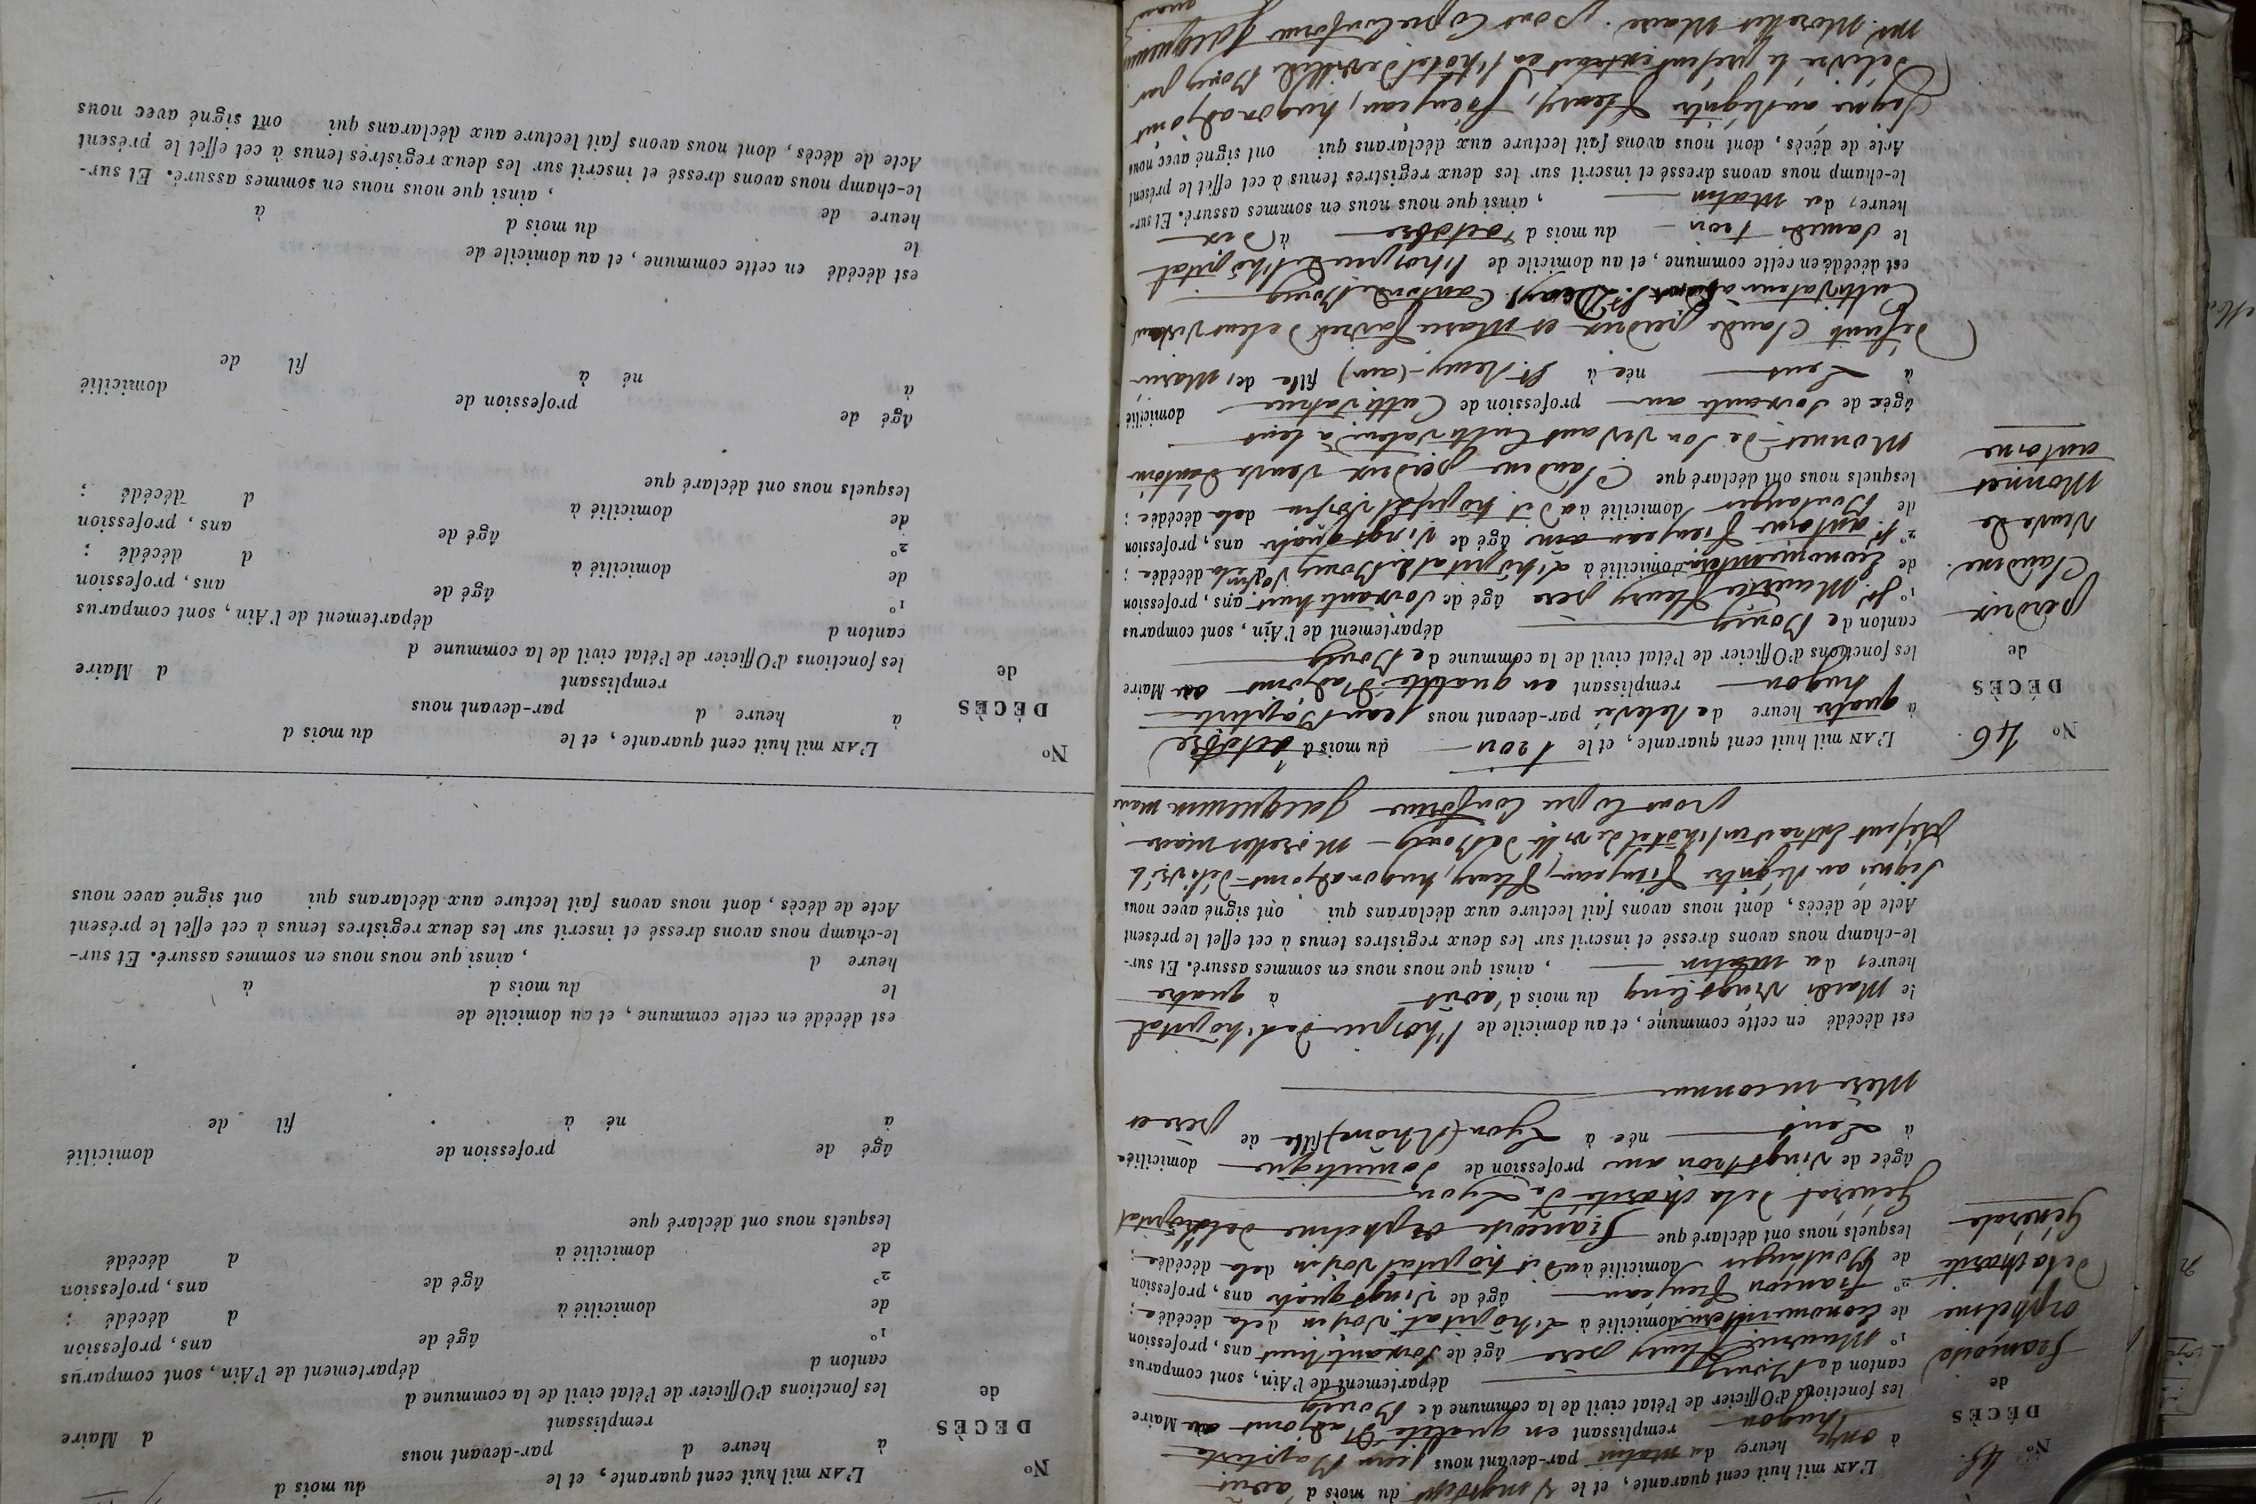 N.° 45.
DÉCÈS
de
françoise
orpheline
de la charité
Générale
L'AN mil huit cent quarante, et le vingt sept du mois d'août
à onze heures du matin par-devant nous jean Baptiste
hugon remplissant en qualité d'adjoint au Maire
les fonctions d'Officier de l'état civil de la commune de Bourg
canton de Bourg département de l'Ain, sont comparus
1° Maurice fleury père âgé de soixante huit ans, profession
de Econome domicilié à l'hôpital voisin de la décédée;
2° françois fienjean âgé de vingt quatre ans, profession
de Boulanger domicilié à dit hôpital voisin de la décédée;
lesquels nous ont déclaré que françoise orpheline de l'hôpital
Général de la charité de Lyon,
âgée de vingt trois ans profession de domestique domiciliée
à Lent née à Lyon (Rhône) fille de père et
Mère inconnus
est décédé en cette commune, et au domicile de l'hospice de l'hôpital
le Mardi vingt cinq du mois d'août à quatre
heures du matin, ainsi que nous nous en sommes assuré. Et sur-
le-champ nous avons dressé et inscrit sur les deux registres tenus à cet effet le présent
Acte de décès, dont nous avons fait lecture aux déclarans qui ont signé avec nous
Signé au Régistre fienjean, fleury, hugon adjoint délivré le
présent Extrait en l'hôtel de ville de Bourg Morellet maire
pour copie Conforme Jacquemin maire
N° 46.
DÉCÈS
de
perdrix
Claudine
veuve de
Monnet
antoine
L'AN mil huit cent quarante, et le trois du mois d'octobre
à quatre heure de Relevée par-devant nous jean Baptiste
hugon remplissant en qualité d'adjoint au Maire
les fonctions d'Officier de l'état civil de la commune de Bourg
canton de Bourg département de l'Ain, sont comparus
1° Maurice fleury père âgé de soixante huit ans, profession
de Econome domicilié à l'hôpital de Bourg voisin de la décédée;
2° antoine fienjean âgé de vingt quatre ans, profession
de Boulanger domicilié à dit hôpital voisin de la décédée;
lesquels nous ont déclaré que Claudine perdrix veuve d'antoine
Monnet de son vivant Cultivateur à Lent
âgée de soixante ans profession de Cultivatrice domiciliée
à Lent née à St Remy (ain) fille de, mariés
défunts Claude perdrix et Marie de leur vivant
Cultivateurs à St Remy, Canton de Bourg
est décédée en cette commune, et au domicile de l'hospice de l'hôpital
le samedi trois du mois d'octobre à dix
heures du matin, ainsi que nous nous en sommes assuré. Et sur-
le-champ nous avons dressé et inscrit sur les deux registres tenus à cet effet le présent
Acte de décès, dont nous avons fait lecture aux déclarans qui ont signé avec nous
Signé au Régistre fleury, fienjean, hugon adjoint
délivré le présent extrait en l'hôtel de ville de Bourg par
Mr Morellet Maire. pour Copie Conforme Jacquemin
N°
DÉCÈS
de
L'AN mil huit cent quarante, et le du mois d
à heure d par-devant nous
remplissant d Maire
les fonctions d'Officier de l'état civil de la commune d
canton d département de l'Ain, sont comparus
1° âgé de ans, profession
de domicilié à d décédé ;
2° âgé de ans, profession
de domicilié à d décédé
lesquels nous ont déclaré que
âgé de profession de domicilié
à né à fil de
est décédé en cette commune, et au domicile de
le du mois d à
heure d , ainsi que nous nous en sommes assuré. Et sur-
le-champ nous avons dressé et inscrit sur les deux registres tenus à cet effet le présent
Acte de décès, dont nous avons fait lecture aux déclarans qui ont signé avec nous
N°
DÉCÈS
de
L'AN mil huit cent quarante, et le du mois d
à heure d par-devant nous
remplissant d Maire
les fonctions d'Officier de l'état civil de la commune d
canton d département de l'Ain, sont comparus
1° âgé de ans, profession
de domicilié à d décédé ;
2° âgé de ans, profession
de domicilié à d décédé ;
lesquels nous ont déclaré que
âgé de profession de domicilié
à né à fil de
est décédé en cette commune, et au domicile de
le du mois d à
heure de , ainsi que nous nous en sommes assuré. Et sur-
le-champ nous avons dressé et inscrit sur les deux registres tenus à cet effet le présent
Acte de décès, dont nous avons fait lecture aux déclarans qui ont signé avec nous